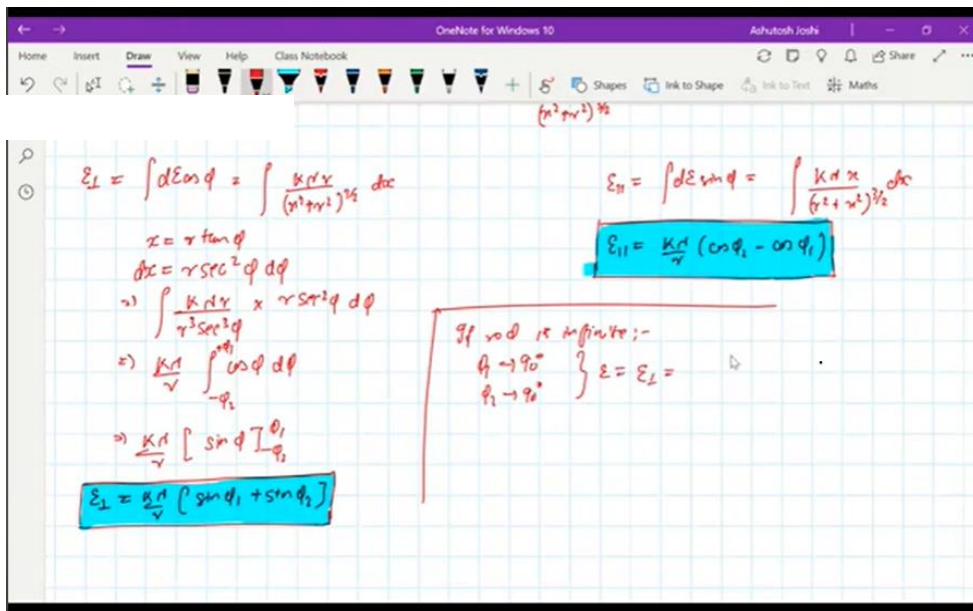 OneNote for Windows 10
Ashutosh Joshi
Home Insert Draw View Help Class Notebook
Share
Shapes Ink to Shape Ink to Text Maths
(x²+r²)^3/2
E⊥ = ∫dE cosφ = ∫ Kλr/(x²+r²)^3/2 dx
x = r tanφ
dx = r sec²φ dφ
=> ∫ Kλr/r³sec³φ × r sec²φ dφ
=> Kλ/r ∫_-φ₂^+φ₁ cosφ dφ
=> Kλ/r [sinφ]_-φ₂^φ₁
E⊥ = Kλ/r [sinφ₁ + sinφ₂]
E|| = ∫dE sinφ = ∫ Kλx/(r²+x²)^3/2 dx
E|| = Kλ/r (cosφ₂ - cosφ₁)
If rod is infinite:-
φ₁ → 90°
φ₂ → 90°
} E = E⊥ =